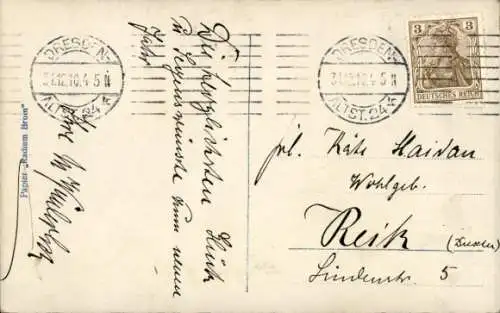 DRESDEN-
31.12.10.4-5N
ALTST. 24 k
DRESDEN-
31.12.10.4-5N
ALTST. 24 k
3 3
DEUTSCHES REICH
Papier „Radium Brom"
Die herzlichsten Glück
u Segenswünsche zum neuen
Jahr
Frl. Käte Haidan
Wohlgeb.
Reik (Dresden)
Lindenstr. 5